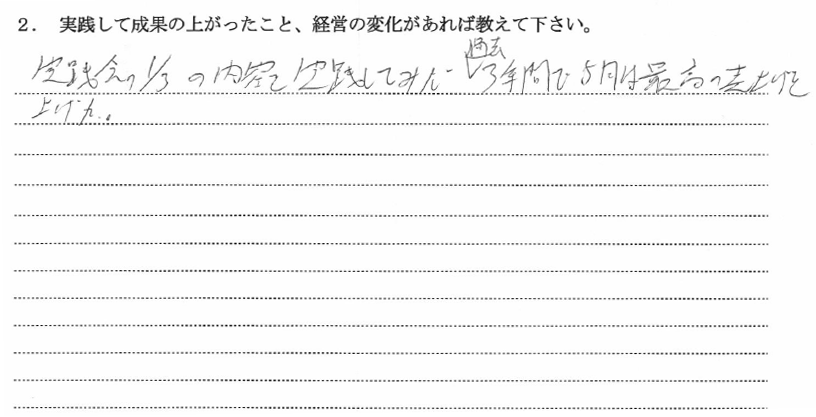 2． 実践して成果の上がったこと、経営の変化があれば教えて下さい。
実践会の1/3の内容を実践してみた 過去3年間で5月は最高の売上げを
上げた。